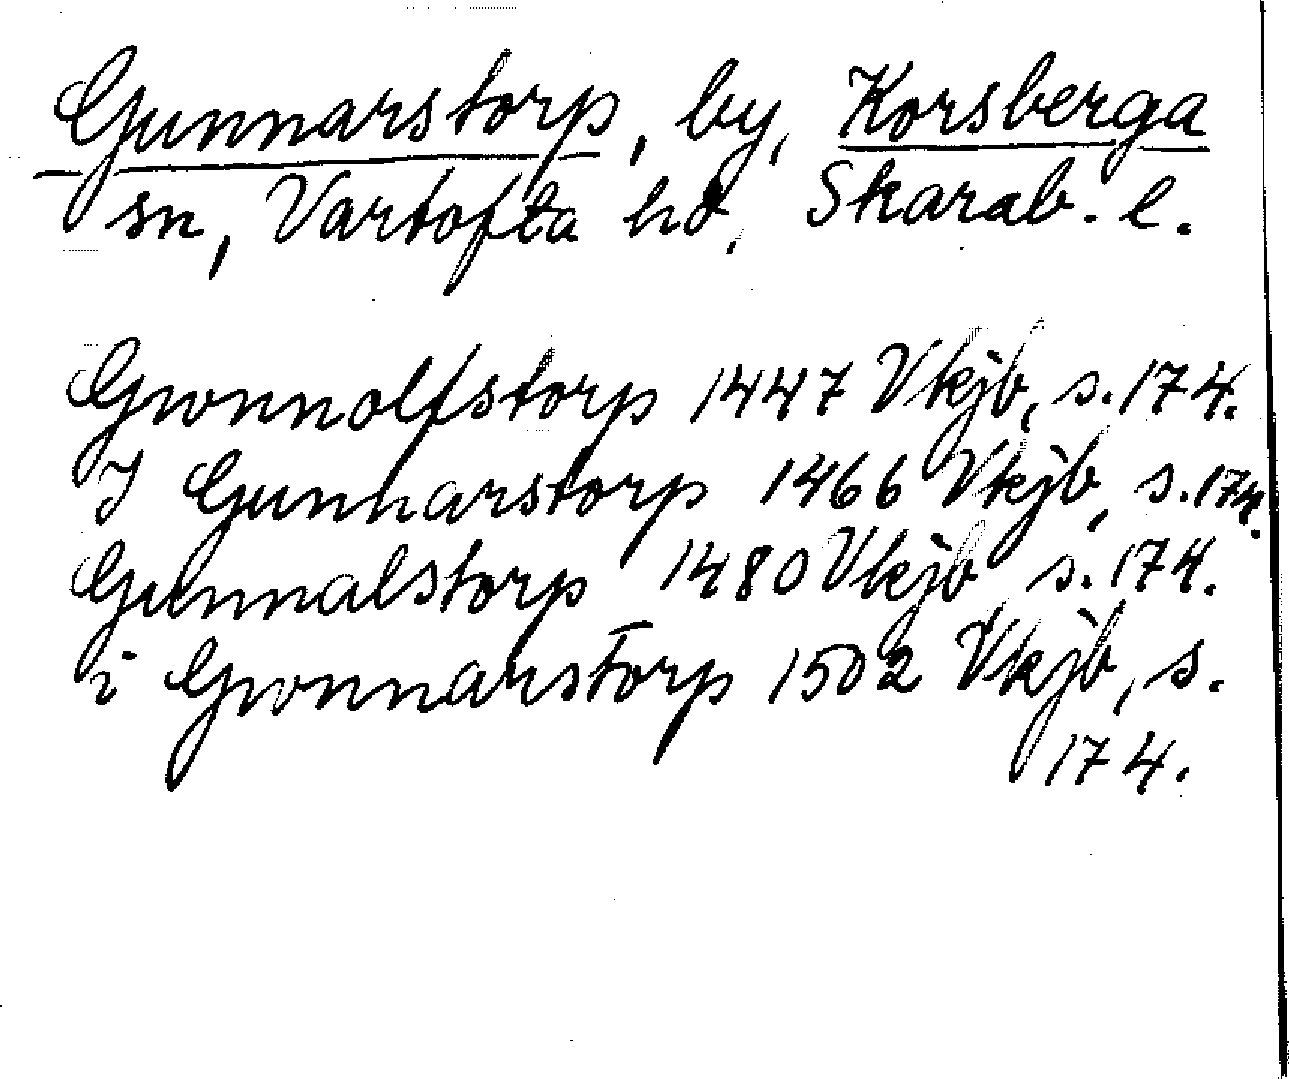 Gunnarstorp, by, Korsberga
sn, Vartofta hd, Skarab. l.
Gwnnolfstorp 1447 Vkjb, s. 174.
J Gunnarstorp 1466 Vkjb, s. 174.
Gunnalstorp 1480 Vkjb s. 174.
i Gwnnarstorp 1502 Vkjb, s.
174.